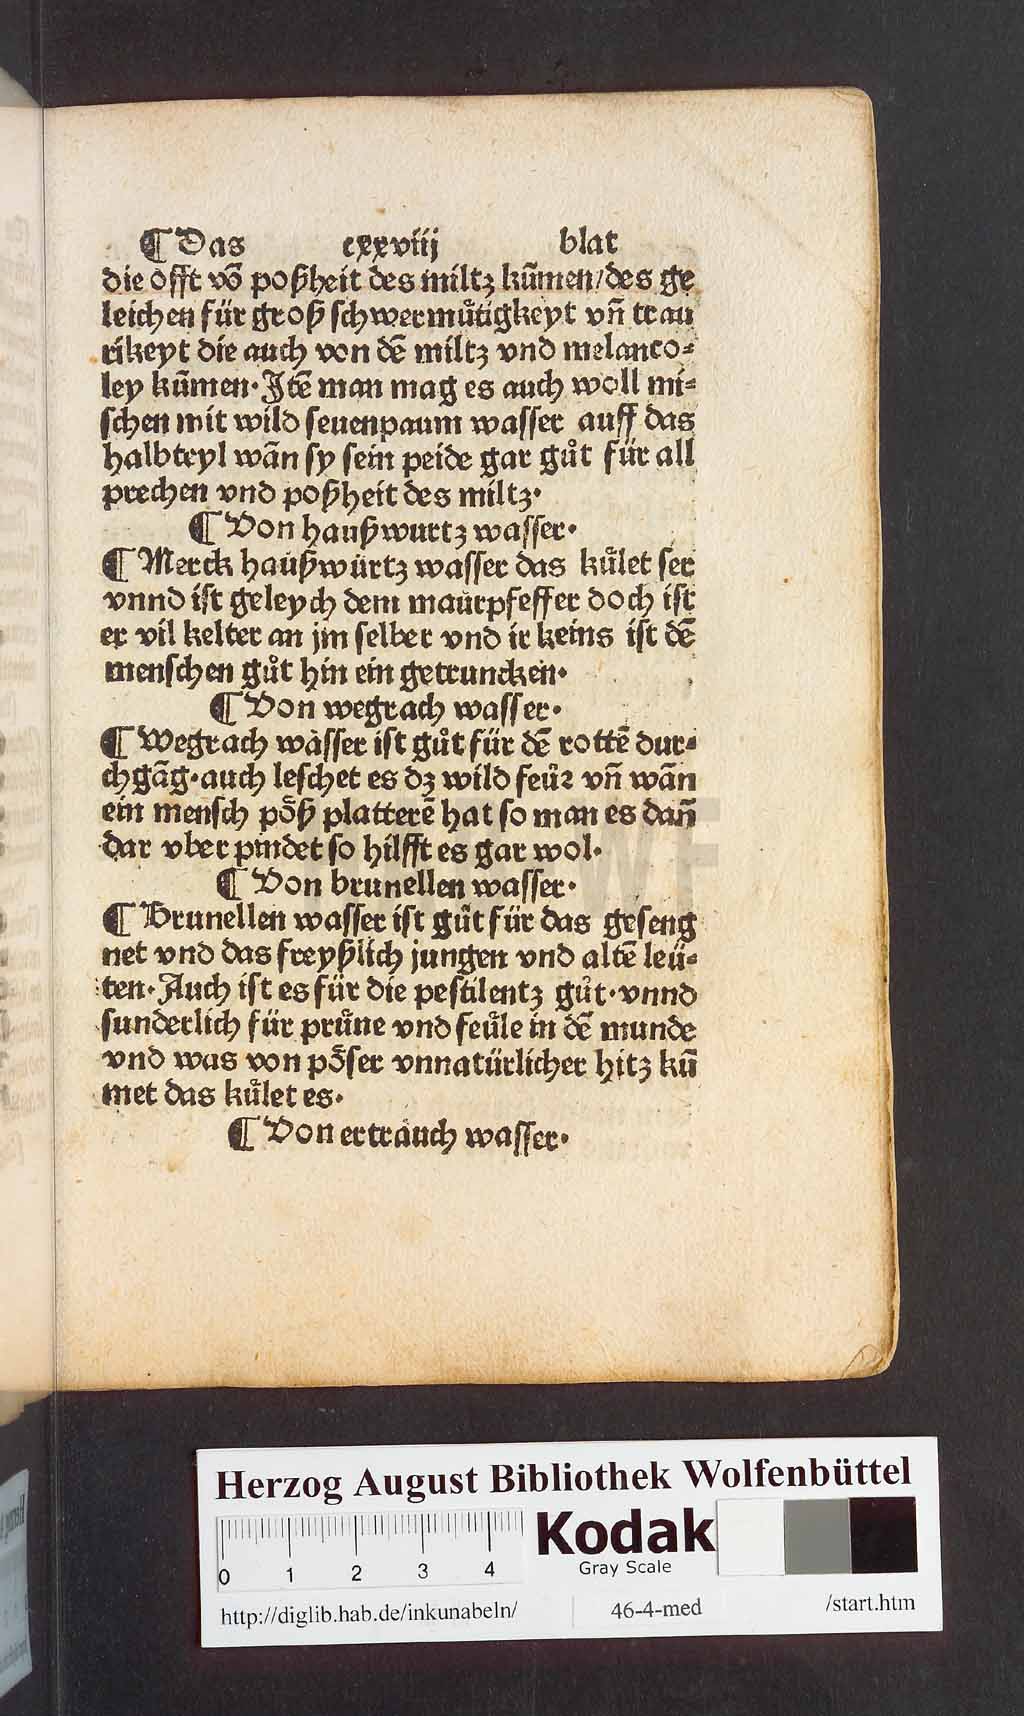 ¶ Das cxxviij blat
die offt võ poßheit des miltz kūmen/des ge
leichen für groß schwermuͤtigkeyt vñ trau
rikeyt die auch von dē miltz vnd melanco⸗
ley kūmen· Jtē man mag es auch woll mi⸗
schen mit wild seuenpaum wasser auff das
halbteyl wān sy sein peide gar guͦt für all
prechen vnd poßheit des miltz·
¶ Von haußwurtz wasser·
¶ Merck haußwürtz wasser das kuͤlet ser
vnnd ist geleych dem maurpfeffer doch ist
er vil kelter an jm selber vnd ir keins ist dē
menschen guͦt hin ein getruncken·
¶ Von wegrach wasser·
¶ Wegrach wasser ist guͦt für dē rottē dur⸗
chgāg· auch leschet es dz wild feuͤr vñ wān
ein mensch poͤß platterē hat so man es dañ
dar vber pindet so hilfft es gar wol·
¶ Von brunellen wasser·
¶ Brunellen wasser ist guͦt für das geseng
net vnd das freyßlich jungen vnd altē leü⸗
ten· Auch ist es für die pestilentz guͦt· vnnd
sunderlich für pruͤne vnd feuͤle in dē munde
vnd was von poͤser vnnatürlicher hitz kū
met das kuͤlet es·
¶ Von ertrauch wasser·
Herzog August Bibliothek Wolfenbüttel
Kodak
Gray Scale
0 1 2 3 4
http://diglib.hab.de/inkunabeln/ 46-4-med /start.htm